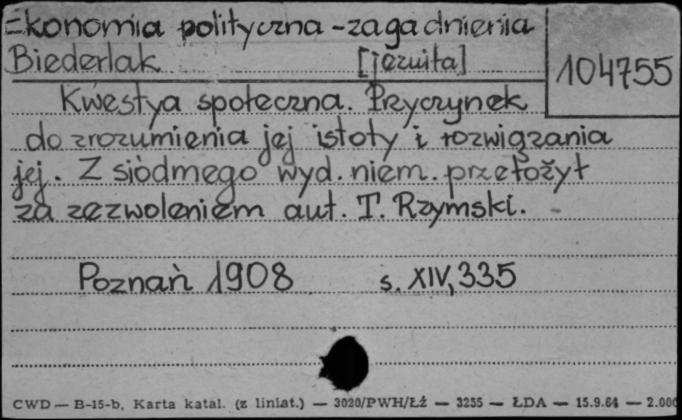 Ekonomia polityczna - zagadnienia
Biederlak [jezuita]
104755
Kwestya społeczna. Przyczynek
do zrozumienia jej istoty i rozwiązania
jej. Z siódmego wyd. niem. przełożył
za zezwoleniem aut. T. Rzymski.
Poznań 1908 s. XIV, 335
CWD — B-15-b, Karta katal. (z liniat.) — 3020/PWH/Łź — 3255 — ŁDA — 15.9.64 — 2.000